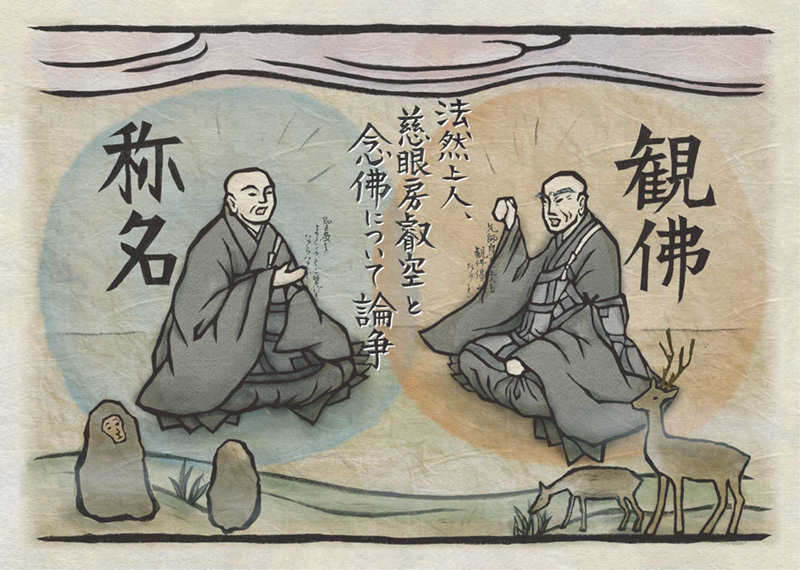 観佛
法然上人、
慈眼房叡空と
念佛について論争
称名